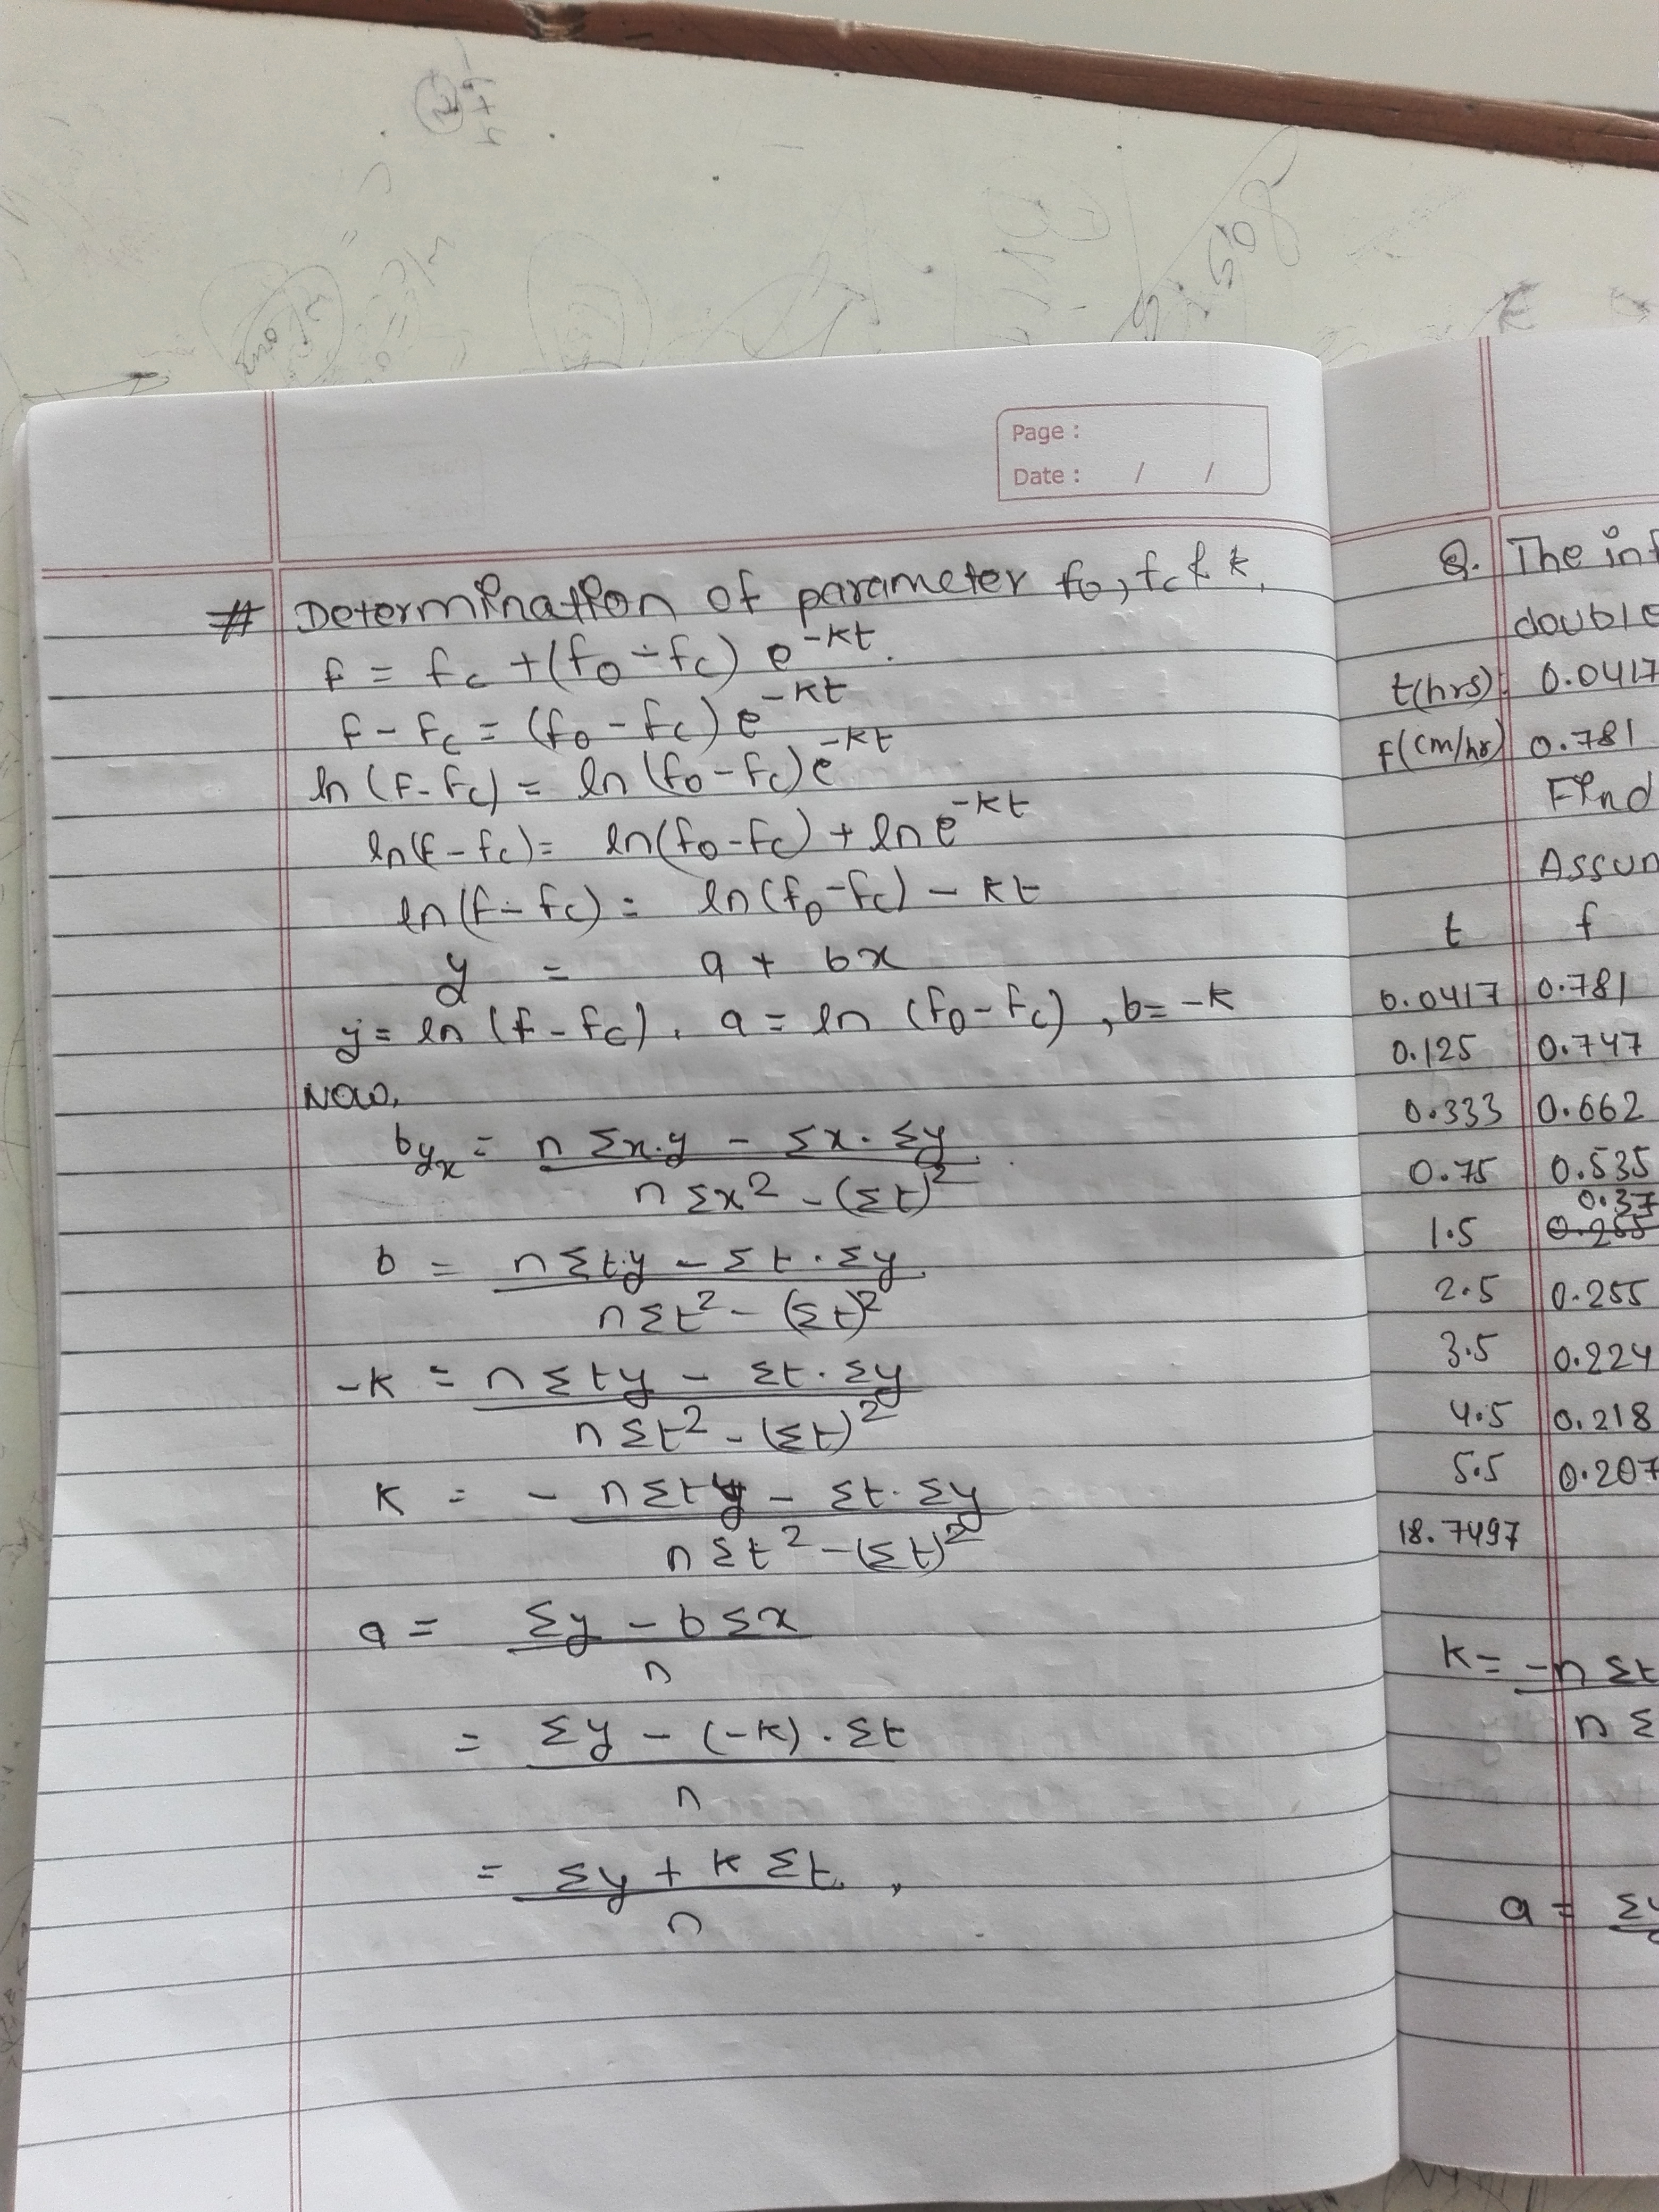 Page :
Date : / /
# Determination of parameter fo, fc & k.
f = fc + (fo - fc) e^-kt.
f - fc = (fo - fc) e^-kt
ln (f - fc) = ln (fo - fc) e^-kt
ln(f - fc) = ln(fo - fc) + ln e^-kt
ln (f - fc) = ln (fo - fc) - kt
y = a + bx
y = ln (f - fc), a = ln (fo - fc), b = -k
Now,
byx = n Σx.y - Σx . Σy
n Σx² - (Σt)²
b = n Σt.y - Σt . Σy
n Σt² - (Σt)²
-k = n Σty - Σt . Σy
n Σt² - (Σt)²
k = - n Σty - Σt . Σy
n Σt² - (Σt)²
a = Σy - b Σx
n
= Σy - (-k) . Σt
n
= Σy + k Σt ,
n
Q. The inf
double
t(hrs) 0.0417
f(cm/hr) 0.781
Find
Assum
t f
0.0417 0.781
0.125 0.747
0.333 0.662
0.75 0.535
0.37
1.5 0.255
2.5 0.255
3.5 0.224
4.5 0.218
5.5 0.207
18.7497
k = -n Σt
n Σ
a = Σy